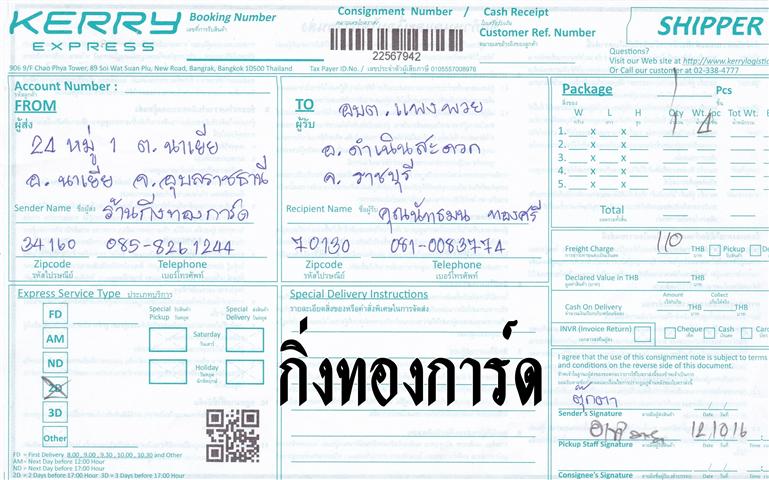 KERRY
EXPRESS
Booking Number
เลขที่การรับสินค้า
Consignment Number / Cash Receipt
22567942
Customer Ref. Number
หมายเลขอ้างอิงของลูกค้า
SHIPPER
Questions?
Visit our Web site at http://www.kerrylogistic
Or Call our customer at 02-338-4777
906 9/F Chao Phya Tower, 89 Soi Wat Suan Plu, New Road, Bangrak, Bangkok 10500 Thailand. Tax Payer ID.No. / เลขประจำตัวผู้เสียภาษี 0105557008976
Account Number :
FROM
ผู้ส่ง
24 หมู่ 1 ต. นาเยีย
อ. นาเยีย จ. อุบลราชธานี
Sender Name ชื่อผู้ส่ง ร้านกิ่งทองการ์ด
34160 085-8261244
Zipcode Telephone
รหัสไปรษณีย์ เบอร์โทรศัพท์
TO
ผู้รับ
อบต. แพงพวย
อ. ดำเนินสะดวก
จ. ราชบุรี
Recipient Name ชื่อผู้รับ คุณนัทธมน ทองศรี
70130 081-0083774
Zipcode Telephone
รหัสไปรษณีย์ เบอร์โทรศัพท์
Package Pcs
W L H Qty Wt./pc Tot Wt.
1. x x 1
2. x x
3. x x
4. x x
5. x x
Total
Freight Charge 110 THB Pickup
Declared Value in THB THB
Amount Collect
Cash On Delivery THB THB
INVR (Invoice Return) Cheque Cash
Express Service Type ประเภทบริการ
FD
AM
ND
2D
3D
Other
Special Pickup
Special Delivery
Saturday
วันเสาร์
Holiday
วันหยุดนักขัตฤกษ์
FD = First Delivery 8.00, 9.00, 9.30, 10.00, 10.30 and Other
AM = Next Day before 12:00 Hour
ND = Next Day before 17:00 Hour
2D = 2 Days before 17:00 Hour 3D = 3 Days before 17:00 Hour
Special Delivery Instructions
รายละเอียดสิ่งของหรือคำสั่งพิเศษในการจัดส่ง
กิ่งทองการ์ด
I agree that the use of this consignment note is subject to terms
and conditions on the reverse side of this document.
ตุ๊กตา
Sender's Signature
Date Time
12/10/16
Pickup Staff Signature
Date Time
Consignee's Signature
Date Time